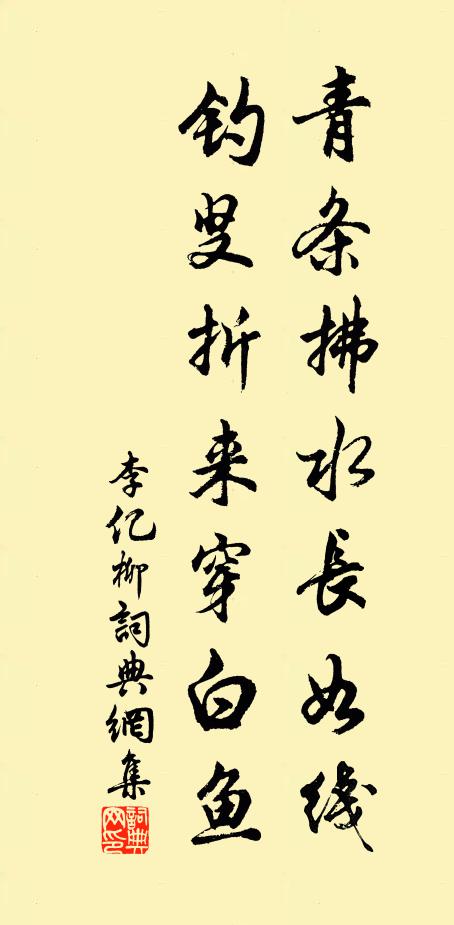 青条拂水長如线
钓叟折来穿白鱼
李亿柳詞典網集
詞典
网印